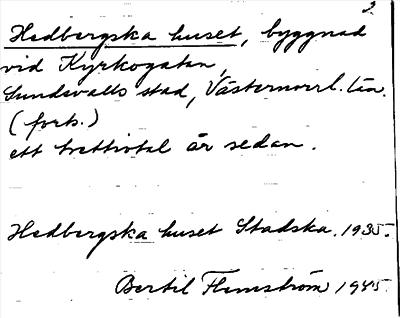 2.
Hedbergska huset, byggnad
vid Kyrkogatan,
Sundsvalls stad, Västernorrl. län.
(forts.)
ett trettiotal år sedan.
Hedbergska huset Stadska. 1935.
Bertil Flemström 1945.